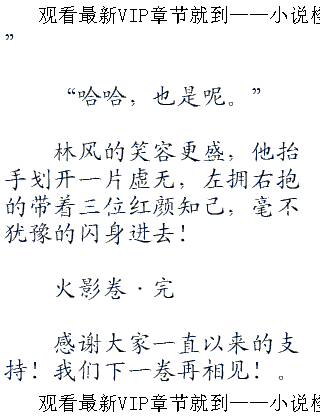 观看最新VIP章节就到——小说
”
“哈哈，也是呢。”
林风的笑容更盛，他抬
手划开一片虚无，左拥右抱
的带着三位红颜知己，毫不
犹豫的闪身进去！
火影卷·完
感谢大家一直以来的支
持！我们下一卷再相见！。
观看最新VIP章节就到——小说